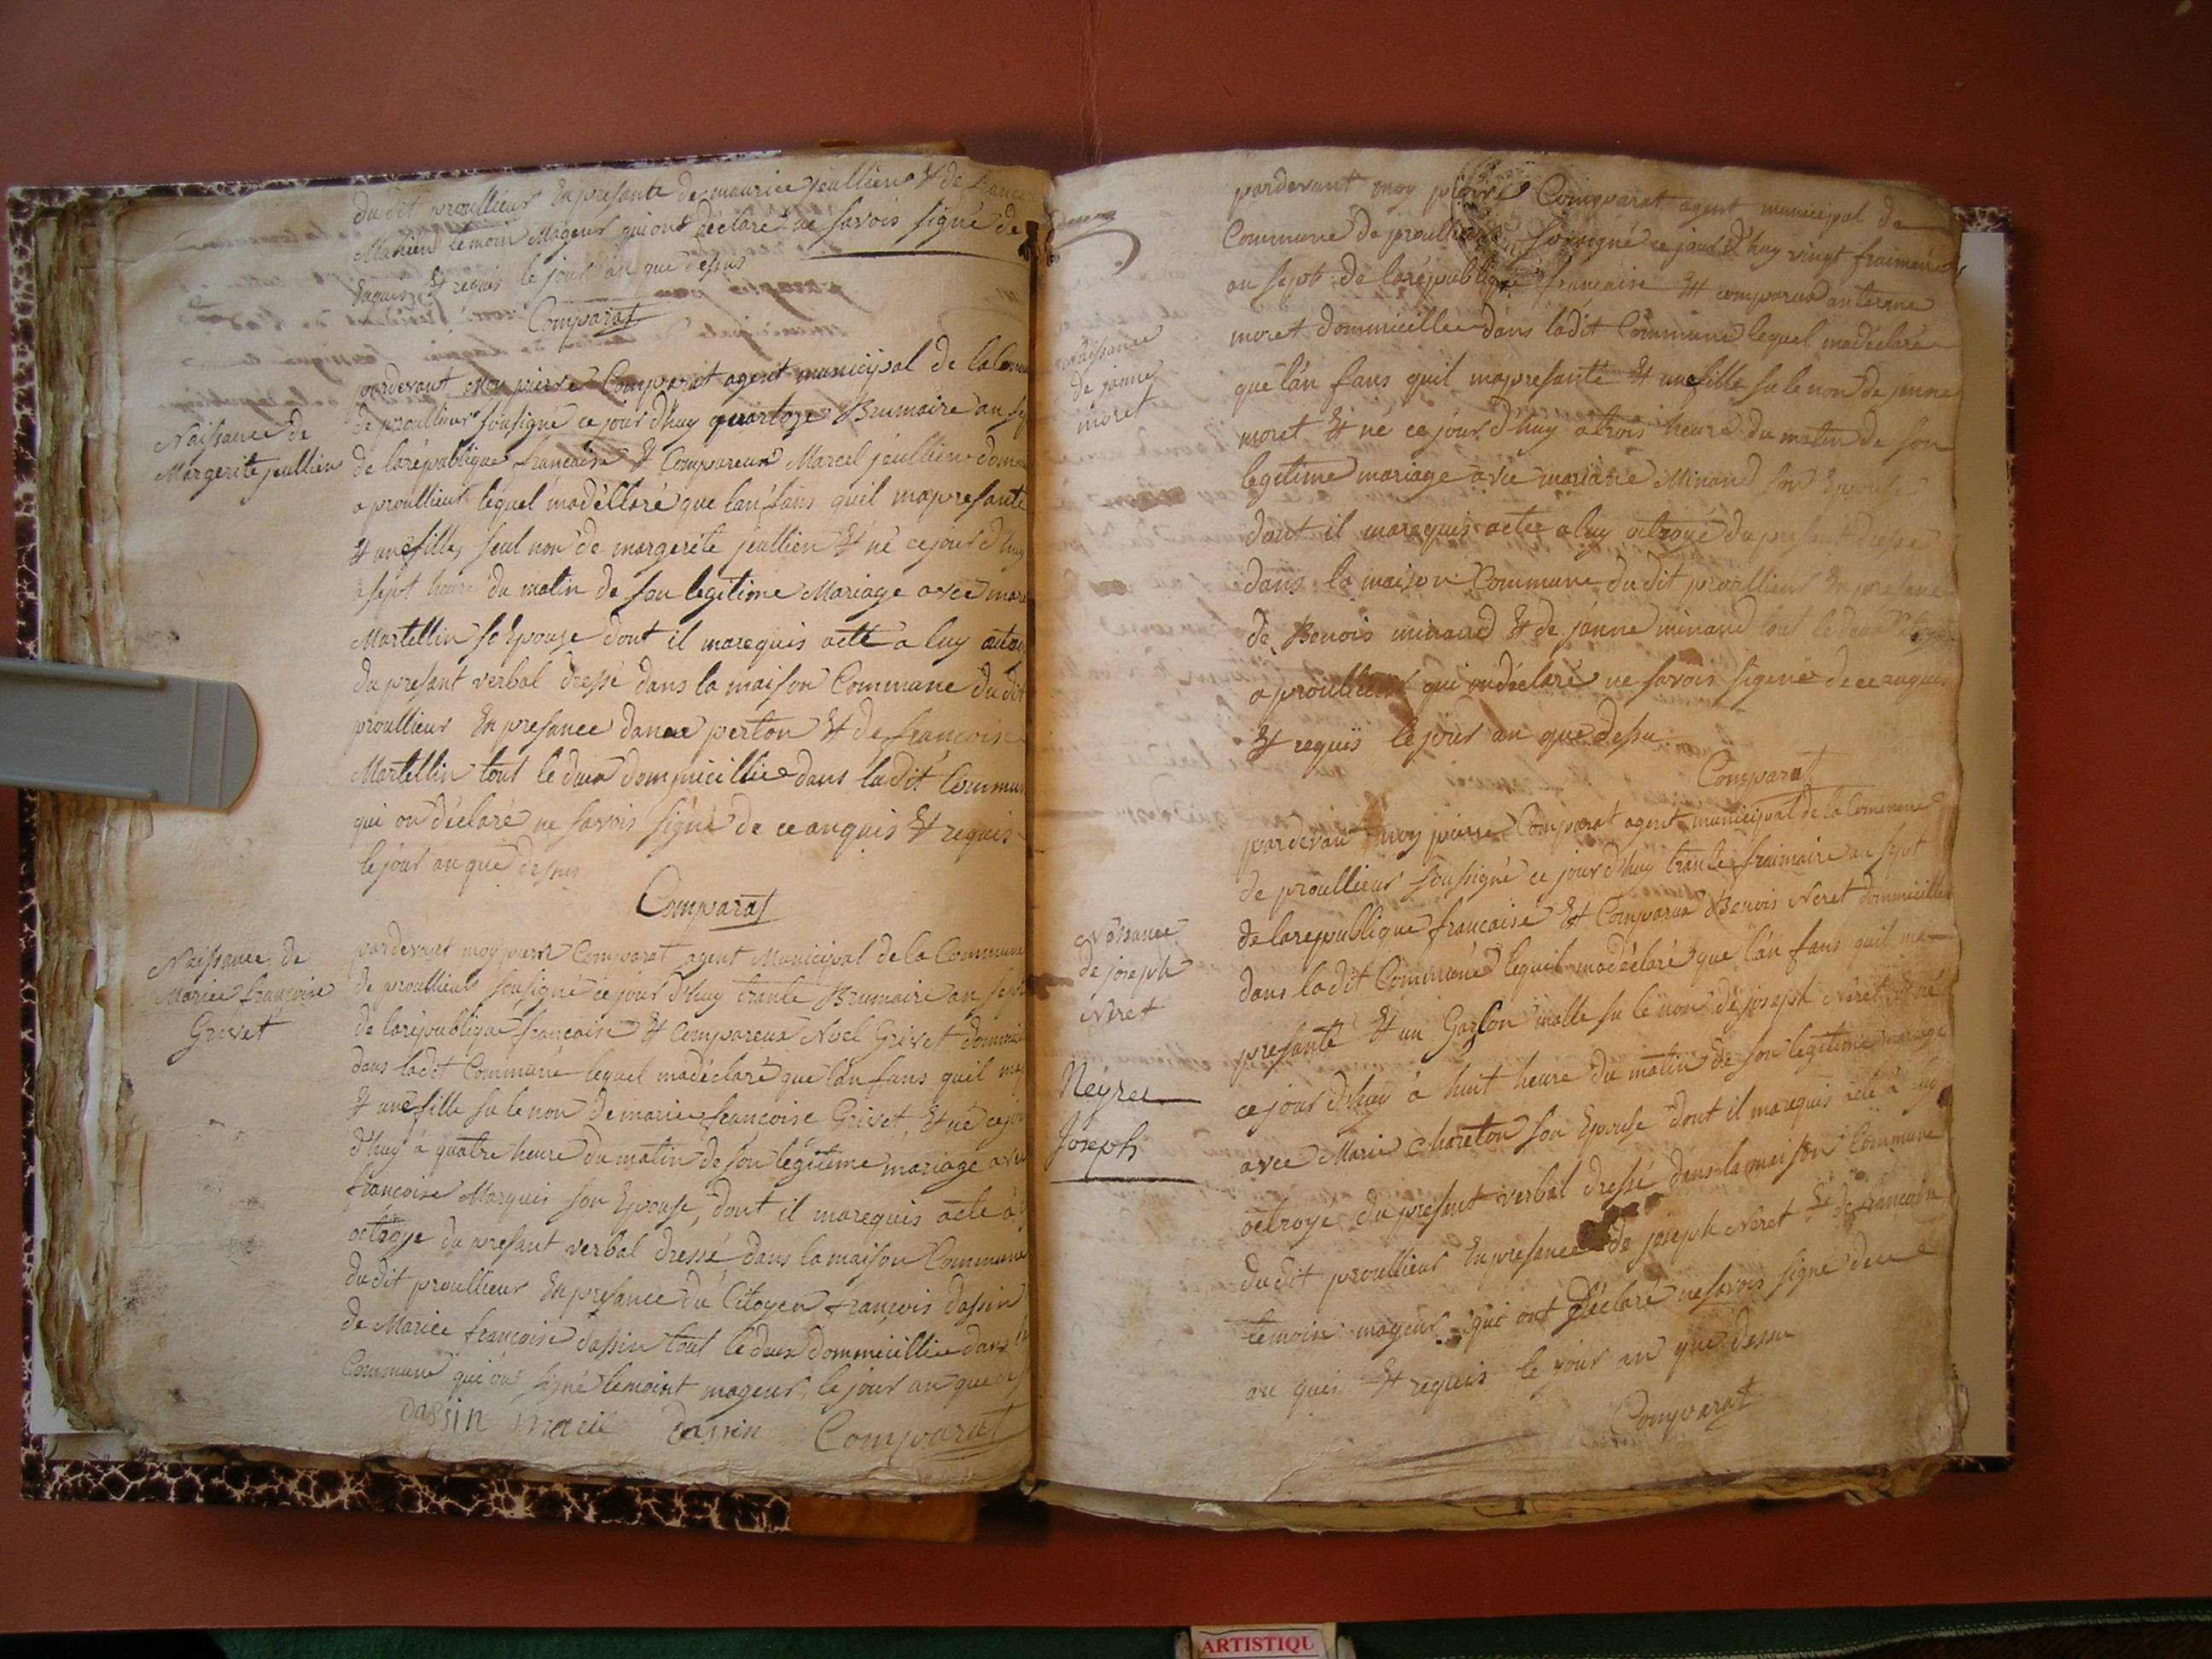 du dit proullieur En presante de maurice jeullien & de
Mahieu temoin Mageur qui ont déclaré ne savois signé de
Enquis & requis le jour an que dessus
Comparat
Naissance de
Margerite jeullien
pardevant moy pierre Comparat agent municipal de la
de proullieur sousigné ce jour d'huy quartoze Brumaire an
de larépublique francaise & Compareux Marcel jeullien
a proullieur lequel madéllaré que lanfans quil mapresante
& une fille, seul non de margerite jeullien & né ce jour d'huy
a sept heure du matin de son legitime Mariage avec
Martellin so Epouse dont il marequis acte a luy
du presant verbal dressé dans la maison Commune du dit
proullieur En presance perton & de francoise
Martellin tout le deux dommicillie dans ladit
qui on déclaré ne savois signé de ce anquis & requis
le jour an que dessus
Comparat
Naissance de
Mariee françoise
Grivet
pardevant moy pierre Comparat agent Municipal de la Commune
de proullieur sousigné ce jour d'huy trante Brumaire an
de larépublique francaise & Compareux Noel Grivet
dans ladit Commune lequel madéclaré que lanfans quil
& une fille su le non de marie francoise Grivet, & né ce
d'huy à quatre heure du matin de son légitime mariage avec
françoise Marquis son Epouse, dont il marequis acte à
octroye du presant verbal dressé dans la maison Commune
du dit proullieur En presance du Citoyen françois dassin
de Mariee françoise dassin tout le deux dommicillie dans
Commune qui on signé temoint mageur, le jour an que
dassin dassin Comparat
pardevant moy pierre Comparat agent municipal de
Commune de proullieur sousigné ce jour d'huy vingt fraimaire
an sept de larépublique francaise & comparus anterene
moret dommicillie dans ladit Commune lequel madéclaré
que lan fans quil mapresante & une fille su le non de janne
moret & né ce jour d'huy a trois heure du matin de son
legitime mariage avec Minand son Epouse
dont il marequis actee a luy octroyé du presant dressé
dans la maison Commune du dit proullieur En presance
de Benois minand & de janne minand tout le deux
a proullieur qui on déclaré ne savois signé de ce anquis
& requis le jour an que dessu
Comparat
Naissance
de janne
moret
pardevant moy pierre Comparat agent municipal de la Commune
de proullieur soussigné ce jour d'huy trante fraimaire an sept
de larepublique francaise & Comparus Benois Néret dommicillie
dans ladit Commune lequel madéclaré que lan fans quil ma
presante & un Garson malle su le non de joseph Néret & né
ce jour d'huy à huit heure du matin de son legitime mariage
avec Marie Chareton son Epouse dont il marequis acte à luy
octroye du presant verbal dressé dans la maison Commune
du dit proullieur En presance de joseph Néret & de francoise
temoin mageur qui ont déclaré ne savois signé de ce
an quis & requis le jour an que dessu
Comparat
Naissance
de joseph
Néret
Neyret
Joseph
ARTISTIQU